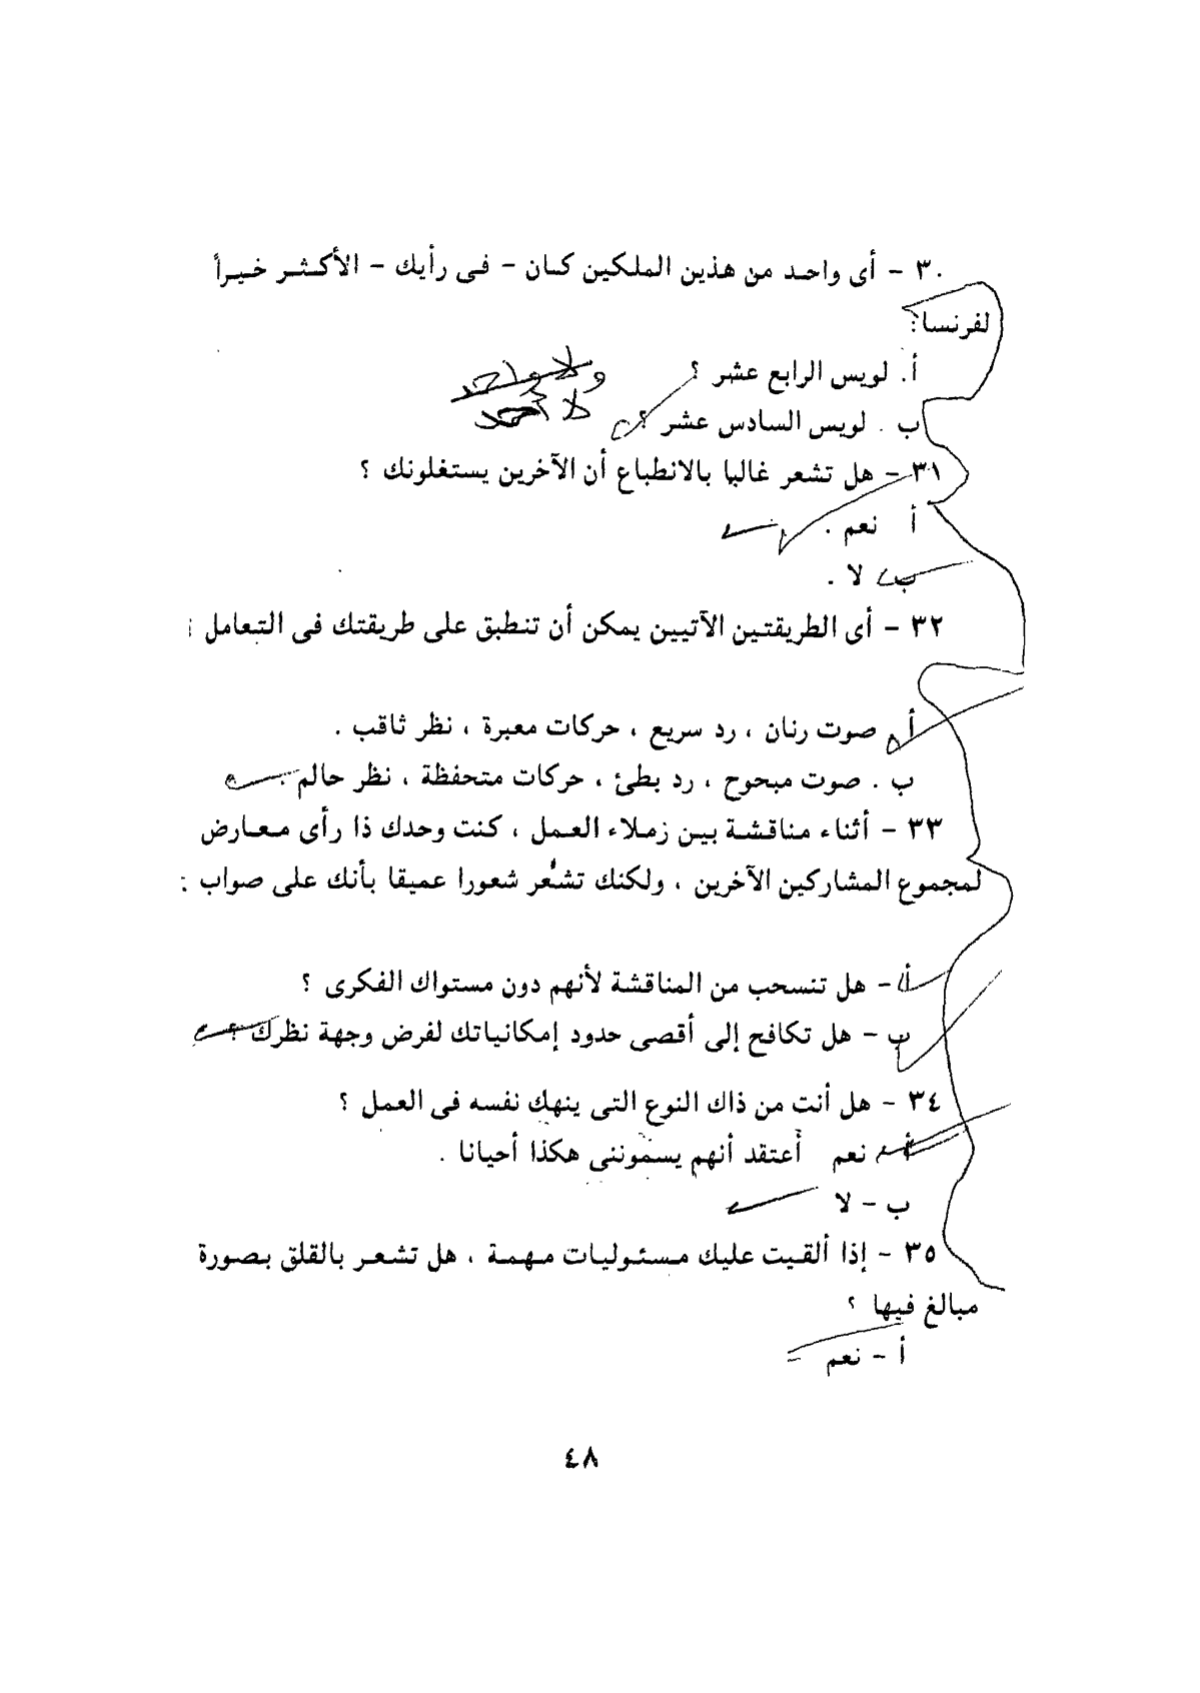 ٣٠ - أى واحد من هذين الملكين كان - فى رأيك - الأكثر خيراً
لفرنسا :
أ. لويس الرابع عشر ؟
ولا واحد
ب . لويس السادس عشر ؟
لا أحد
٣١ - هل تشعر غالبا بالانطباع أن الآخرين يستغلونك ؟
أ نعم .
ب لا .
٣٢ - أى الطريقتين الآتيين يمكن أن تنطبق على طريقتك فى التعامل :
أ صوت رنان ، رد سريع ، حركات معبرة ، نظر ثاقب .
ب . صوت مبحوح ، رد بطئ ، حركات متحفظة ، نظر حالم .
٣٣ - أثناء مناقشة بين زملاء العمل ، كنت وحدك ذا رأى معارض
لمجموع المشاركين الآخرين ، ولكنك تشعر شعورا عميقا بأنك على صواب :
أ - هل تنسحب من المناقشة لأنهم دون مستواك الفكرى ؟
ب - هل تكافح إلى أقصى حدود إمكانياتك لفرض وجهة نظرك ؟
٣٤ - هل أنت من ذاك النوع التى ينهك نفسه فى العمل ؟
أ - نعم أعتقد أنهم يسموننى هكذا أحيانا .
ب - لا
٣٥ - إذا ألقيت عليك مسئوليات مهمة ، هل تشعر بالقلق بصورة
مبالغ فيها ؟
أ - نعم
٤٨